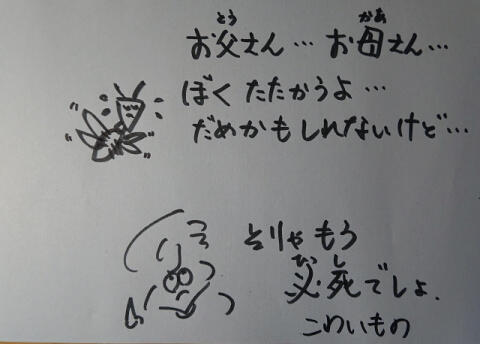 お父さん… お母さん…
とう かあ
ぼく たたかうよ…
だめかもしれないけど…
そりゃもう
ひっ し
必死でしょ.
こわいもの